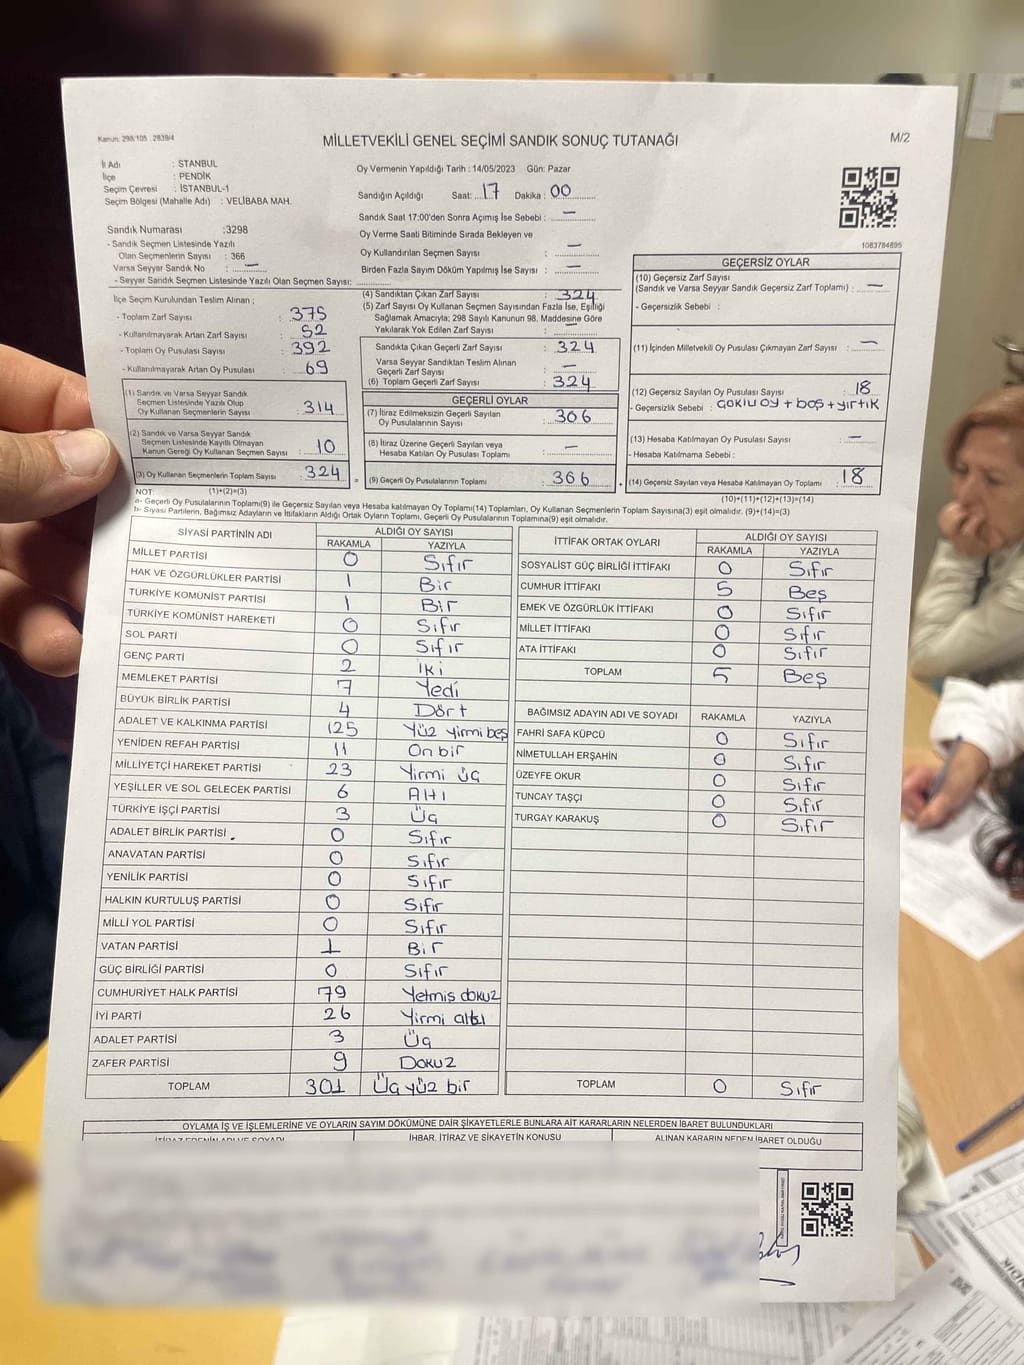 Kanun: 298/105 , 2839/4
MİLLETVEKİLİ GENEL SEÇİMİ SANDIK SONUÇ TUTANAĞI
M/2
İl Adı : STANBUL
İlçe : PENDİK
Seçim Çevresi : İSTANBUL-1
Seçim Bölgesi (Mahalle Adı) : VELİBABA MAH.
Oy Vermenin Yapıldığı Tarih : 14/05/2023 Gün: Pazar
Sandığın Açıldığı Saat: 17 Dakika : 00
Sandık Saat 17:00'den Sonra Açımış İse Sebebi : —
Oy Verme Saati Bitiminde Sırada Bekleyen ve
Oy Kullandırılan Seçmen Sayısı : —
Birden Fazla Sayım Döküm Yapılmış İse Sayısı : —
1083784895
Sandık Numarası :3298
- Sandık Seçmen Listesinde Yazılı
Olan Seçmenlerin Sayısı : 366
Varsa Seyyar Sandık No : —
- Seyyar Sandık Seçmen Listesinde Yazılı Olan Seçmen Sayısı:
İlçe Seçim Kurulundan Teslim Alınan ;
- Toplam Zarf Sayısı : 375
- Kullanılmayarak Artan Zarf Sayısı : 52
- Toplam Oy Pusulası Sayısı : 392
- Kullanılmayarak Artan Oy Pusulası : 69
(1) Sandık ve Varsa Seyyar Sandık
Seçmen Listesinde Yazılı Olup
Oy Kullanan Seçmenlerin Sayısı : 314
(2) Sandık ve Varsa Seyyar Sandık
Seçmen Listesinde Kayıtlı Olmayan
Kanun Gereği Oy Kullanan Seçmen Sayısı : 10
(3) Oy Kullanan Seçmenlerin Toplam Sayısı : 324
(4) Sandıktan Çıkan Zarf Sayısı : 324
(5) Zarf Sayısı Oy Kullanan Seçmen Sayısından Fazla İse, Eşitliği
Sağlamak Amacıyla; 298 Sayılı Kanunun 98. Maddesine Göre
Yakılarak Yok Edilen Zarf Sayısı : —
Sandıkta Çıkan Geçerli Zarf Sayısı : 324
Varsa Seyyar Sandıktan Teslim Alınan
Geçerli Zarf Sayısı : —
(6) Toplam Geçerli Zarf Sayısı : 324
GEÇERLİ OYLAR
(7) İtiraz Edilmeksizin Geçerli Sayılan
Oy Pusulalarının Sayısı : 306
(8) İtiraz Üzerine Geçerli Sayılan veya
Hesaba Katılan Oy Pusulası Toplamı : —
= (9) Geçerli Oy Pusulalarının Toplamı : 366
GEÇERSİZ OYLAR
(10) Geçersiz Zarf Sayısı
(Sandık ve Varsa Seyyar Sandık Geçersiz Zarf Toplamı) : —
- Geçersizlik Sebebi :
(11) İçinden Milletvekili Oy Pusulası Çıkmayan Zarf Sayısı : —
(12) Geçersiz Sayılan Oy Pusulası Sayısı : 18
- Geçersizlik Sebebi : çoklu oy + boş + yırtık
(13) Hesaba Katılmayan Oy Pusulası Sayısı : —
- Hesaba Katılmama Sebebi :
+ (14) Geçersiz Sayılan veya Hesaba Katılmayan Oy Toplamı : 18
NOT: (1)+(2)=(3)
(10)+(11)+(12)+(13)=(14)
a- Geçerli Oy Pusulalarının Toplamı(9) ile Geçersiz Sayılan veya Hesaba katılmayan Oy Toplamı(14) Toplamları, Oy Kullanan Seçmenlerin Toplam Sayısına(3) eşit olmalıdır. (9)+(14)=(3)
b- Siyasi Partilerin, Bağımsız Adayların ve İttifakların Aldığı Ortak Oyların Toplamı, Geçerli Oy Pusulalarının Toplamına(9) eşit olmalıdır.
SİYASİ PARTİNİN ADI ALDIĞI OY SAYISI
RAKAMLA YAZIYLA
MİLLET PARTİSİ 0 Sıfır
HAK VE ÖZGÜRLÜKLER PARTİSİ 1 Bir
TÜRKİYE KOMÜNİST PARTİSİ 1 Bir
TÜRKİYE KOMÜNİST HAREKETİ 0 Sıfır
SOL PARTİ 0 Sıfır
GENÇ PARTİ 2 İki
MEMLEKET PARTİSİ 7 Yedi
BÜYÜK BİRLİK PARTİSİ 4 Dört
ADALET VE KALKINMA PARTİSİ 125 Yüz yirmi beş
YENİDEN REFAH PARTİSİ 11 On bir
MİLLİYETÇİ HAREKET PARTİSİ 23 Yirmi üç
YEŞİLLER VE SOL GELECEK PARTİSİ 6 Altı
TÜRKİYE İŞÇİ PARTİSİ 3 Üç
ADALET BİRLİK PARTİSİ 0 Sıfır
ANAVATAN PARTİSİ 0 Sıfır
YENİLİK PARTİSİ 0 Sıfır
HALKIN KURTULUŞ PARTİSİ 0 Sıfır
MİLLİ YOL PARTİSİ 0 Sıfır
VATAN PARTİSİ 1 Bir
GÜÇ BİRLİĞİ PARTİSİ 0 Sıfır
CUMHURİYET HALK PARTİSİ 79 Yetmiş dokuz
İYİ PARTİ 26 Yirmi altı
ADALET PARTİSİ 3 Üç
ZAFER PARTİSİ 9 Dokuz
TOPLAM 301 Üç yüz bir
İTTİFAK ORTAK OYLARI ALDIĞI OY SAYISI
RAKAMLA YAZIYLA
SOSYALİST GÜÇ BİRLİĞİ İTTİFAKI 0 Sıfır
CUMHUR İTTİFAKI 5 Beş
EMEK VE ÖZGÜRLÜK İTTİFAKI 0 Sıfır
MİLLET İTTİFAKI 0 Sıfır
ATA İTTİFAKI 0 Sıfır
TOPLAM 5 Beş
BAĞIMSIZ ADAYIN ADI VE SOYADI RAKAMLA YAZIYLA
FAHRİ SAFA KÜPCÜ 0 Sıfır
NİMETULLAH ERŞAHİN 0 Sıfır
ÜZEYFE OKUR 0 Sıfır
TUNCAY TAŞÇI 0 Sıfır
TURGAY KARAKUŞ 0 Sıfır
TOPLAM 0 Sıfır
OYLAMA İŞ VE İŞLEMLERİNE VE OYLARIN SAYIM DÖKÜMÜNE DAİR ŞİKAYETLERLE BUNLARA AİT KARARLARIN NELERDEN İBARET BULUNDUKLARI
İTİRAZ EDENİN ADI VE SOYADI İHBAR, İTİRAZ VE ŞİKAYETİN KONUSU ALINAN KARARIN NEDEN İBARET OLDUĞU